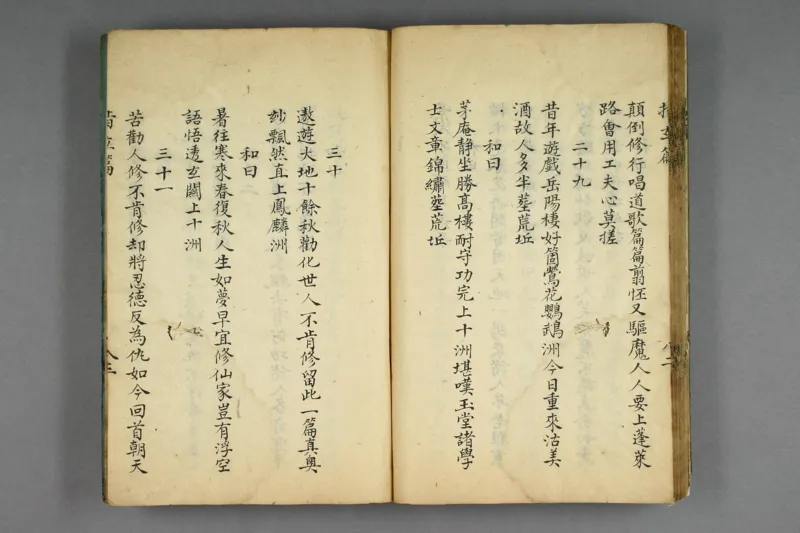 指玄篇
顛倒修行唱道歌篇篇翦怪又驅魔人人要上蓬萊
路會用工夫心莫搓
二十九
昔年遊戲岳陽樓好箇鶯花鸚鵡洲今日重來沽美
酒故人多半墓荒坵
和曰
茅庵静坐勝高樓耐守功完上十洲堪嘆玉堂諸學
士文章錦繡墓荒坵
三十
遨遊大地十餘秋勸化世人不肯修留此一篇真奥
妙飄然直上鳳麟洲
和曰
暑往寒來春復秋人生如夢早宜修仙家豈有浮空
語悟透玄關上十洲
三十一
苦勸人修不肯修却將恩德反為仇如今回首朝天
指玄篇